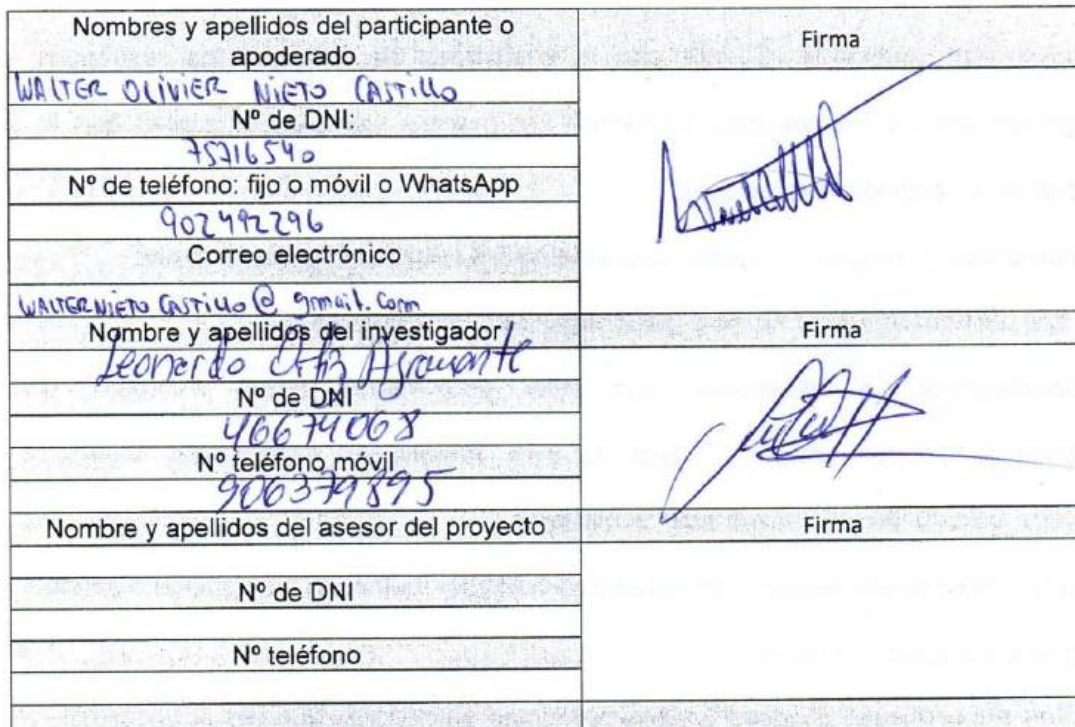 Nombres y apellidos del participante o
apoderado
Firma
WALTER OLIVIER NIETO CASTILLO
Nº de DNI:
75716540
Nº de teléfono: fijo o móvil o WhatsApp
902492296
Correo electrónico
WALTERNIETOCASTILLO@gmail.com
Nombre y apellidos del investigador
Firma
Leonardo Ortiz Agramonte
Nº de DNI
46674068
Nº teléfono móvil
906379895
Nombre y apellidos del asesor del proyecto
Firma
Nº de DNI
Nº teléfono